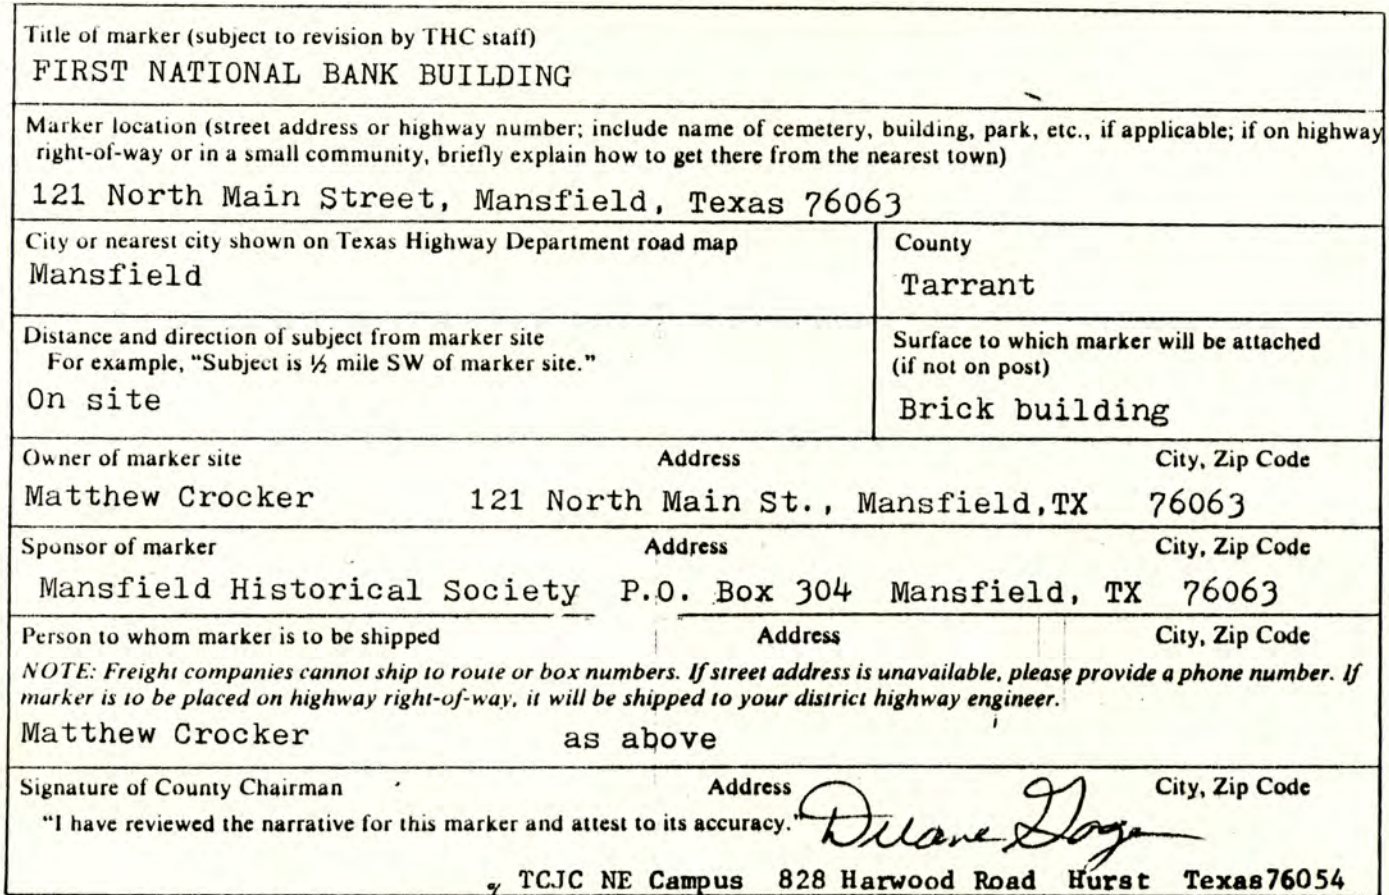 Title of marker (subject to revision by THC staff)
FIRST NATIONAL BANK BUILDING
Marker location (street address or highway number; include name of cemetery, building, park, etc., if applicable; if on highway
right-of-way or in a small community, briefly explain how to get there from the nearest town)
121 North Main Street, Mansfield, Texas 76063
City or nearest city shown on Texas Highway Department road map County
Mansfield Tarrant
Distance and direction of subject from marker site Surface to which marker will be attached
For example, “Subject is ½ mile SW of marker site.” (if not on post)
On site Brick building
Owner of marker site Address City, Zip Code
Matthew Crocker 121 North Main St., Mansfield,TX 76063
Sponsor of marker Address City, Zip Code
Mansfield Historical Society P.O. Box 304 Mansfield, TX 76063
Person to whom marker is to be shipped Address City, Zip Code
NOTE: Freight companies cannot ship to route or box numbers. If street address is unavailable, please provide a phone number. If
marker is to be placed on highway right-of-way, it will be shipped to your district highway engineer.
Matthew Crocker as above
Signature of County Chairman Address City, Zip Code
“I have reviewed the narrative for this marker and attest to its accuracy.” Duane Gage
% TCJC NE Campus 828 Harwood Road Hurst Texas76054